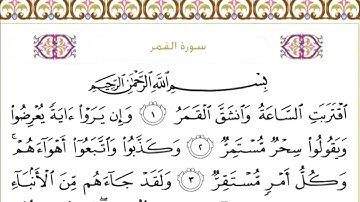 سورة القمر
بِسْمِ ٱللَّهِ ٱلرَّحْمَٰنِ ٱلرَّحِيمِ
ٱقْتَرَبَتِ ٱلسَّاعَةُ وَٱنشَقَّ ٱلْقَمَرُ ١ وَإِن يَرَوْا۟ ءَايَةً يُعْرِضُوا۟
وَيَقُولُوا۟ سِحْرٌ مُّسْتَمِرٌّ ٢ وَكَذَّبُوا۟ وَٱتَّبَعُوٓا۟ أَهْوَآءَهُمْ ۚ
وَكُلُّ أَمْرٍ مُّسْتَقِرٌّ ٣ وَلَقَدْ جَآءَهُم مِّنَ ٱلْأَنۢبَآءِ